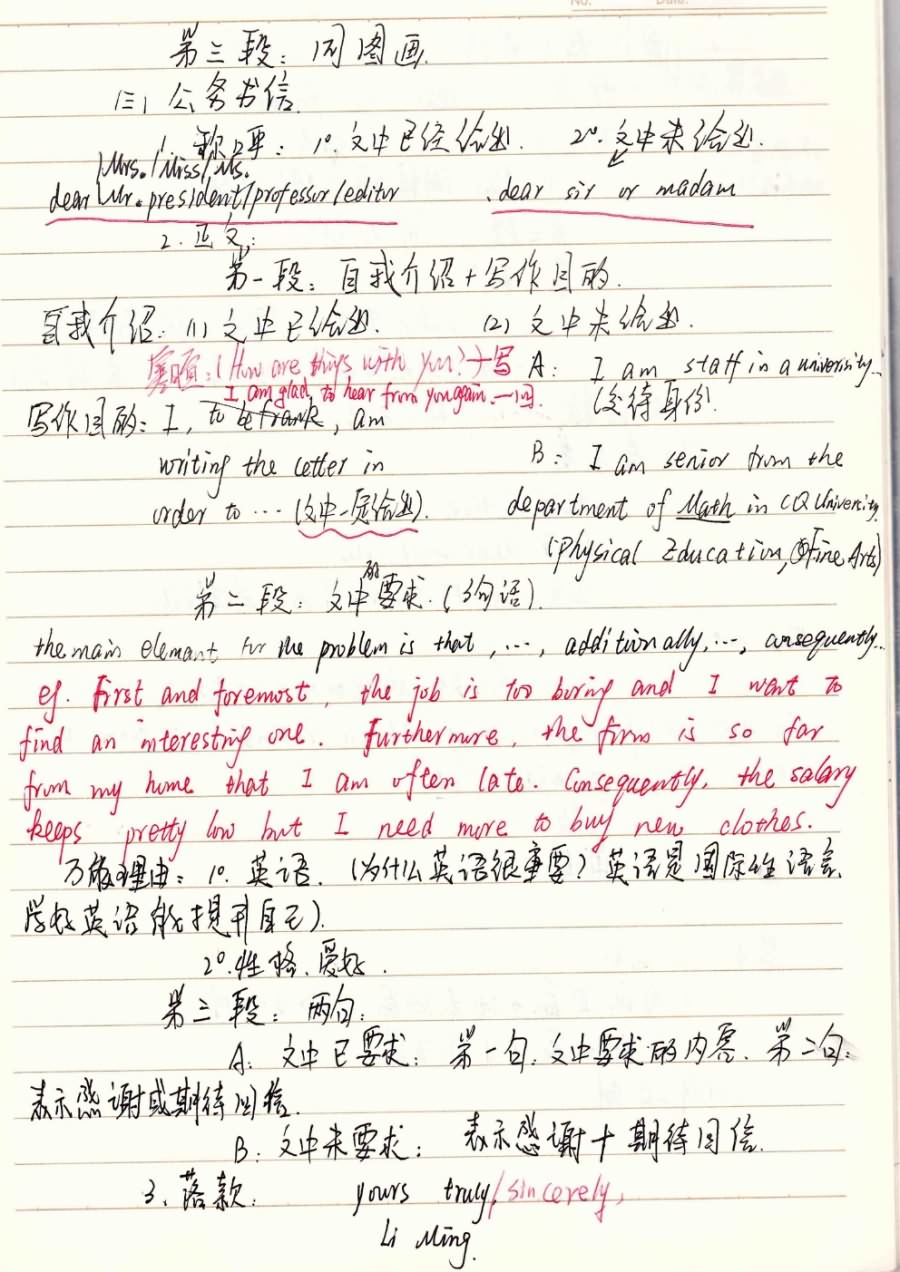 No. Date.
第三段：同图画.
(三) 公务书信.
1. 称呼：1°. 文中已经给出. 2°. 文中未给出.
Mrs./Miss/Ms.
dear Mr. president/professor/editor . dear sir or madam
2. 正文：
第一段：自我介绍+写作目的.
自我介绍：(1) 文中已给出. (2) 文中未给出.
寒暄：(How are things with you?)→写 A: I am staff in a univerisity..
I am glad to hear from you again.—回. (交待身份).
写作目的：I, to be frank, am
writing the letter in B: I am senior from the
order to … (文中一定给出). department of Math in CQ University.
(Physical Education, Fine Arts)
第二段：文中的要求.(3句话).
the main elemant for the problem is that, …, additionally, …, consequently…
eg. First and foremost, the job is too boring and I want to
find an interesting one. Furthermore, the firm is so far
from my home that I am often late. Consequently, the salary
keeps pretty low but I need more to buy new clothes.
万能理由：1°. 英语. (为什么英语很重要？英语是国际性语言,
学好英语能提升自己).
2°. 性格、爱好.
第三段：两句：
A: 文中已要求：第一句：文中要求的内容. 第二句：
表示感谢或期待回信.
B: 文中未要求：表示感谢+期待回信.
3. 落款： yours truly/sincerely,
Li Ming.